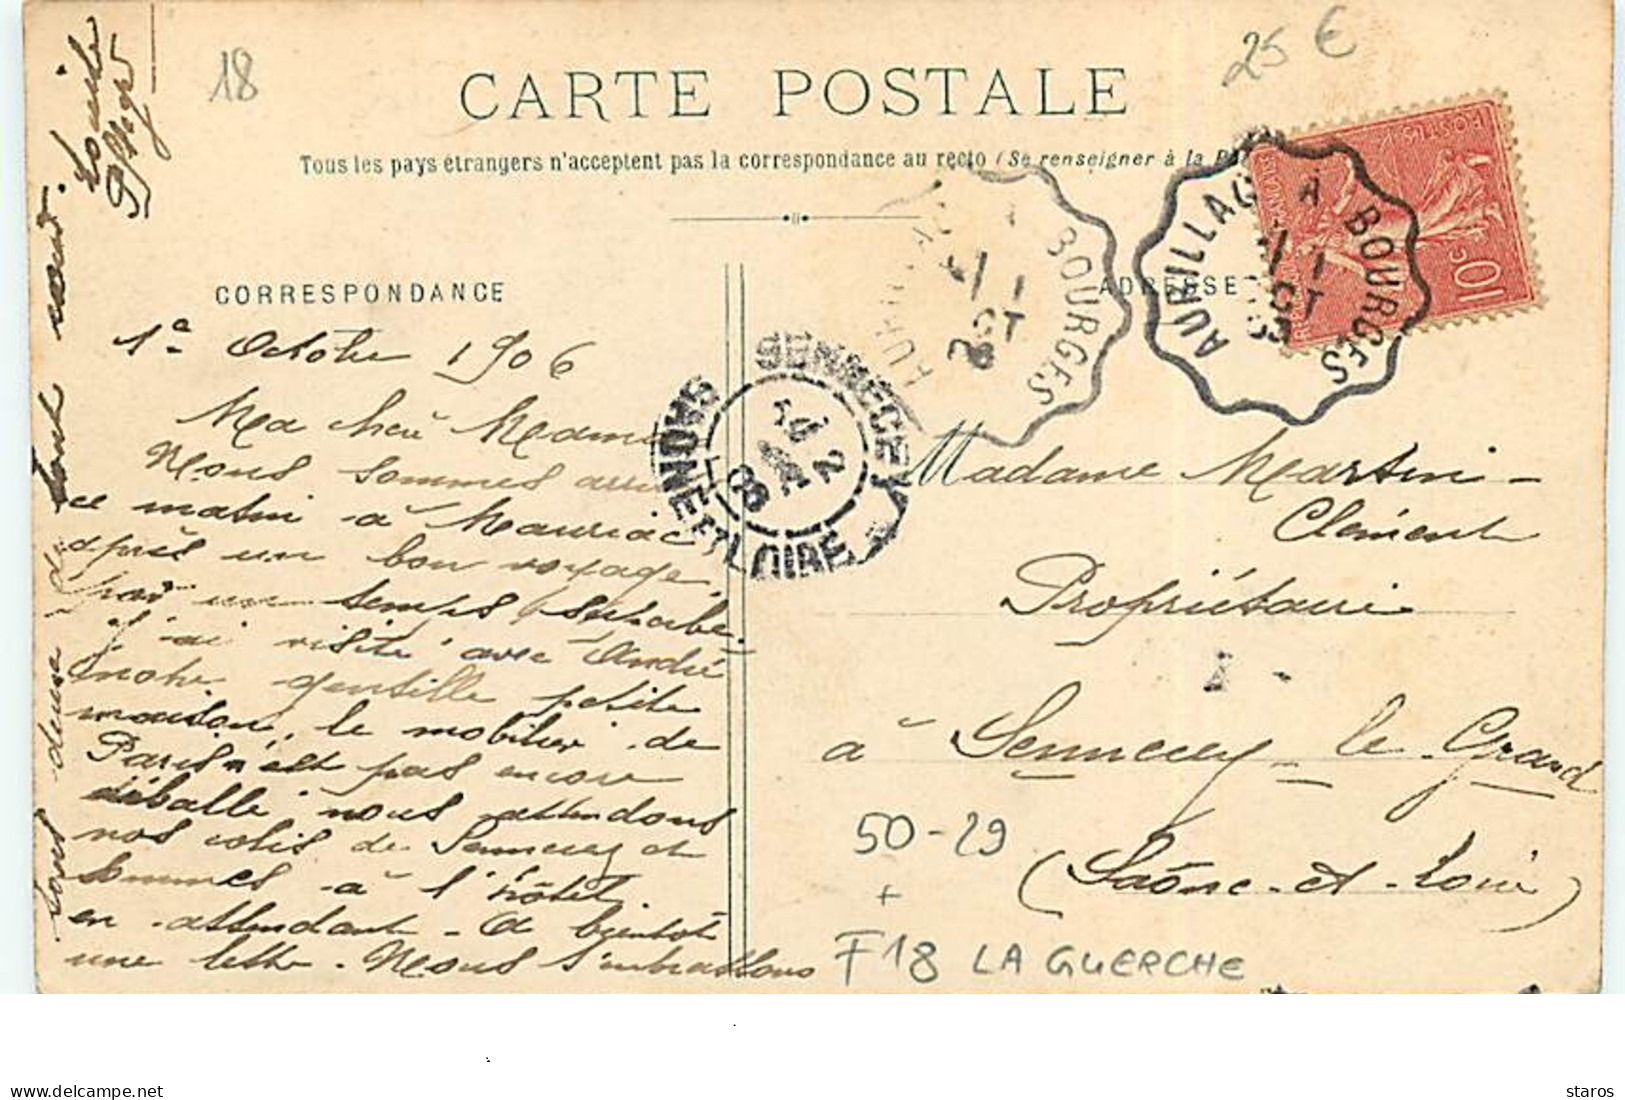 18
25 €
CARTE POSTALE
Tous les pays étrangers n'acceptent pas la correspondance au recto (Se renseigner à la
POSTES
10c
AURILLAC A BOURGES
1
OCT
AUR BOURGES
1
OCT
06
SENNECEY
2
06
SAONE ET LOIRE
CORRESPONDANCE
ADRESSE
1e Octobre 1906
Ma chère Maman
Nous sommes arrivés
ce matin à Mauriac
après un bon voyage
par un temps superbe.
J'ai visité avec André
notre gentille petite
maison, le mobilier de
Paris n'est pas encore
déballé, nous attendons
nos colis de Sennecey et
sommes à l'hôtel
en attendant - A bientôt
une lettre. Nous t'embrassons
tous deux de tout cœur.
Louise
Madame Martin-
Clément
Propriétaire
à Sennecey-le-Grand
(Saône-et-Loire)
50-29
+
F18 LA GUERCHE
https://www.delcampe.net
staros